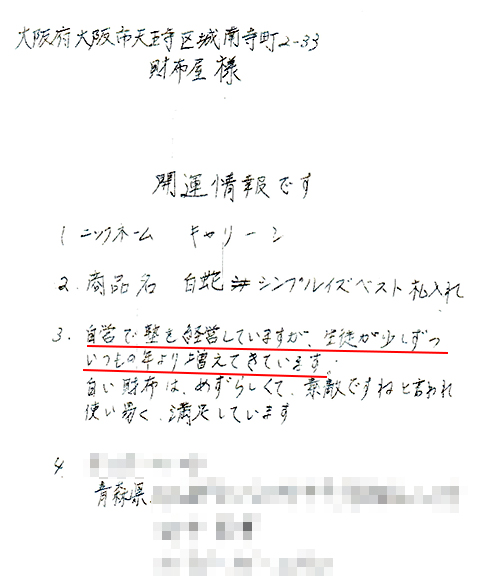 大阪府大阪市天王寺区城南寺町2-33
財布屋様
開運情報です
1 ニックネーム キャリーン
2. 商品名 白蛇 シンプルイズベスト 札入れ
3. 自営で塾を経営していますが、生徒が少しずつ
いつもの年より増えてきています。
白い財布は、めずらしくて、素敵ですねと言われ
使い易く、満足しています
4.
青森県